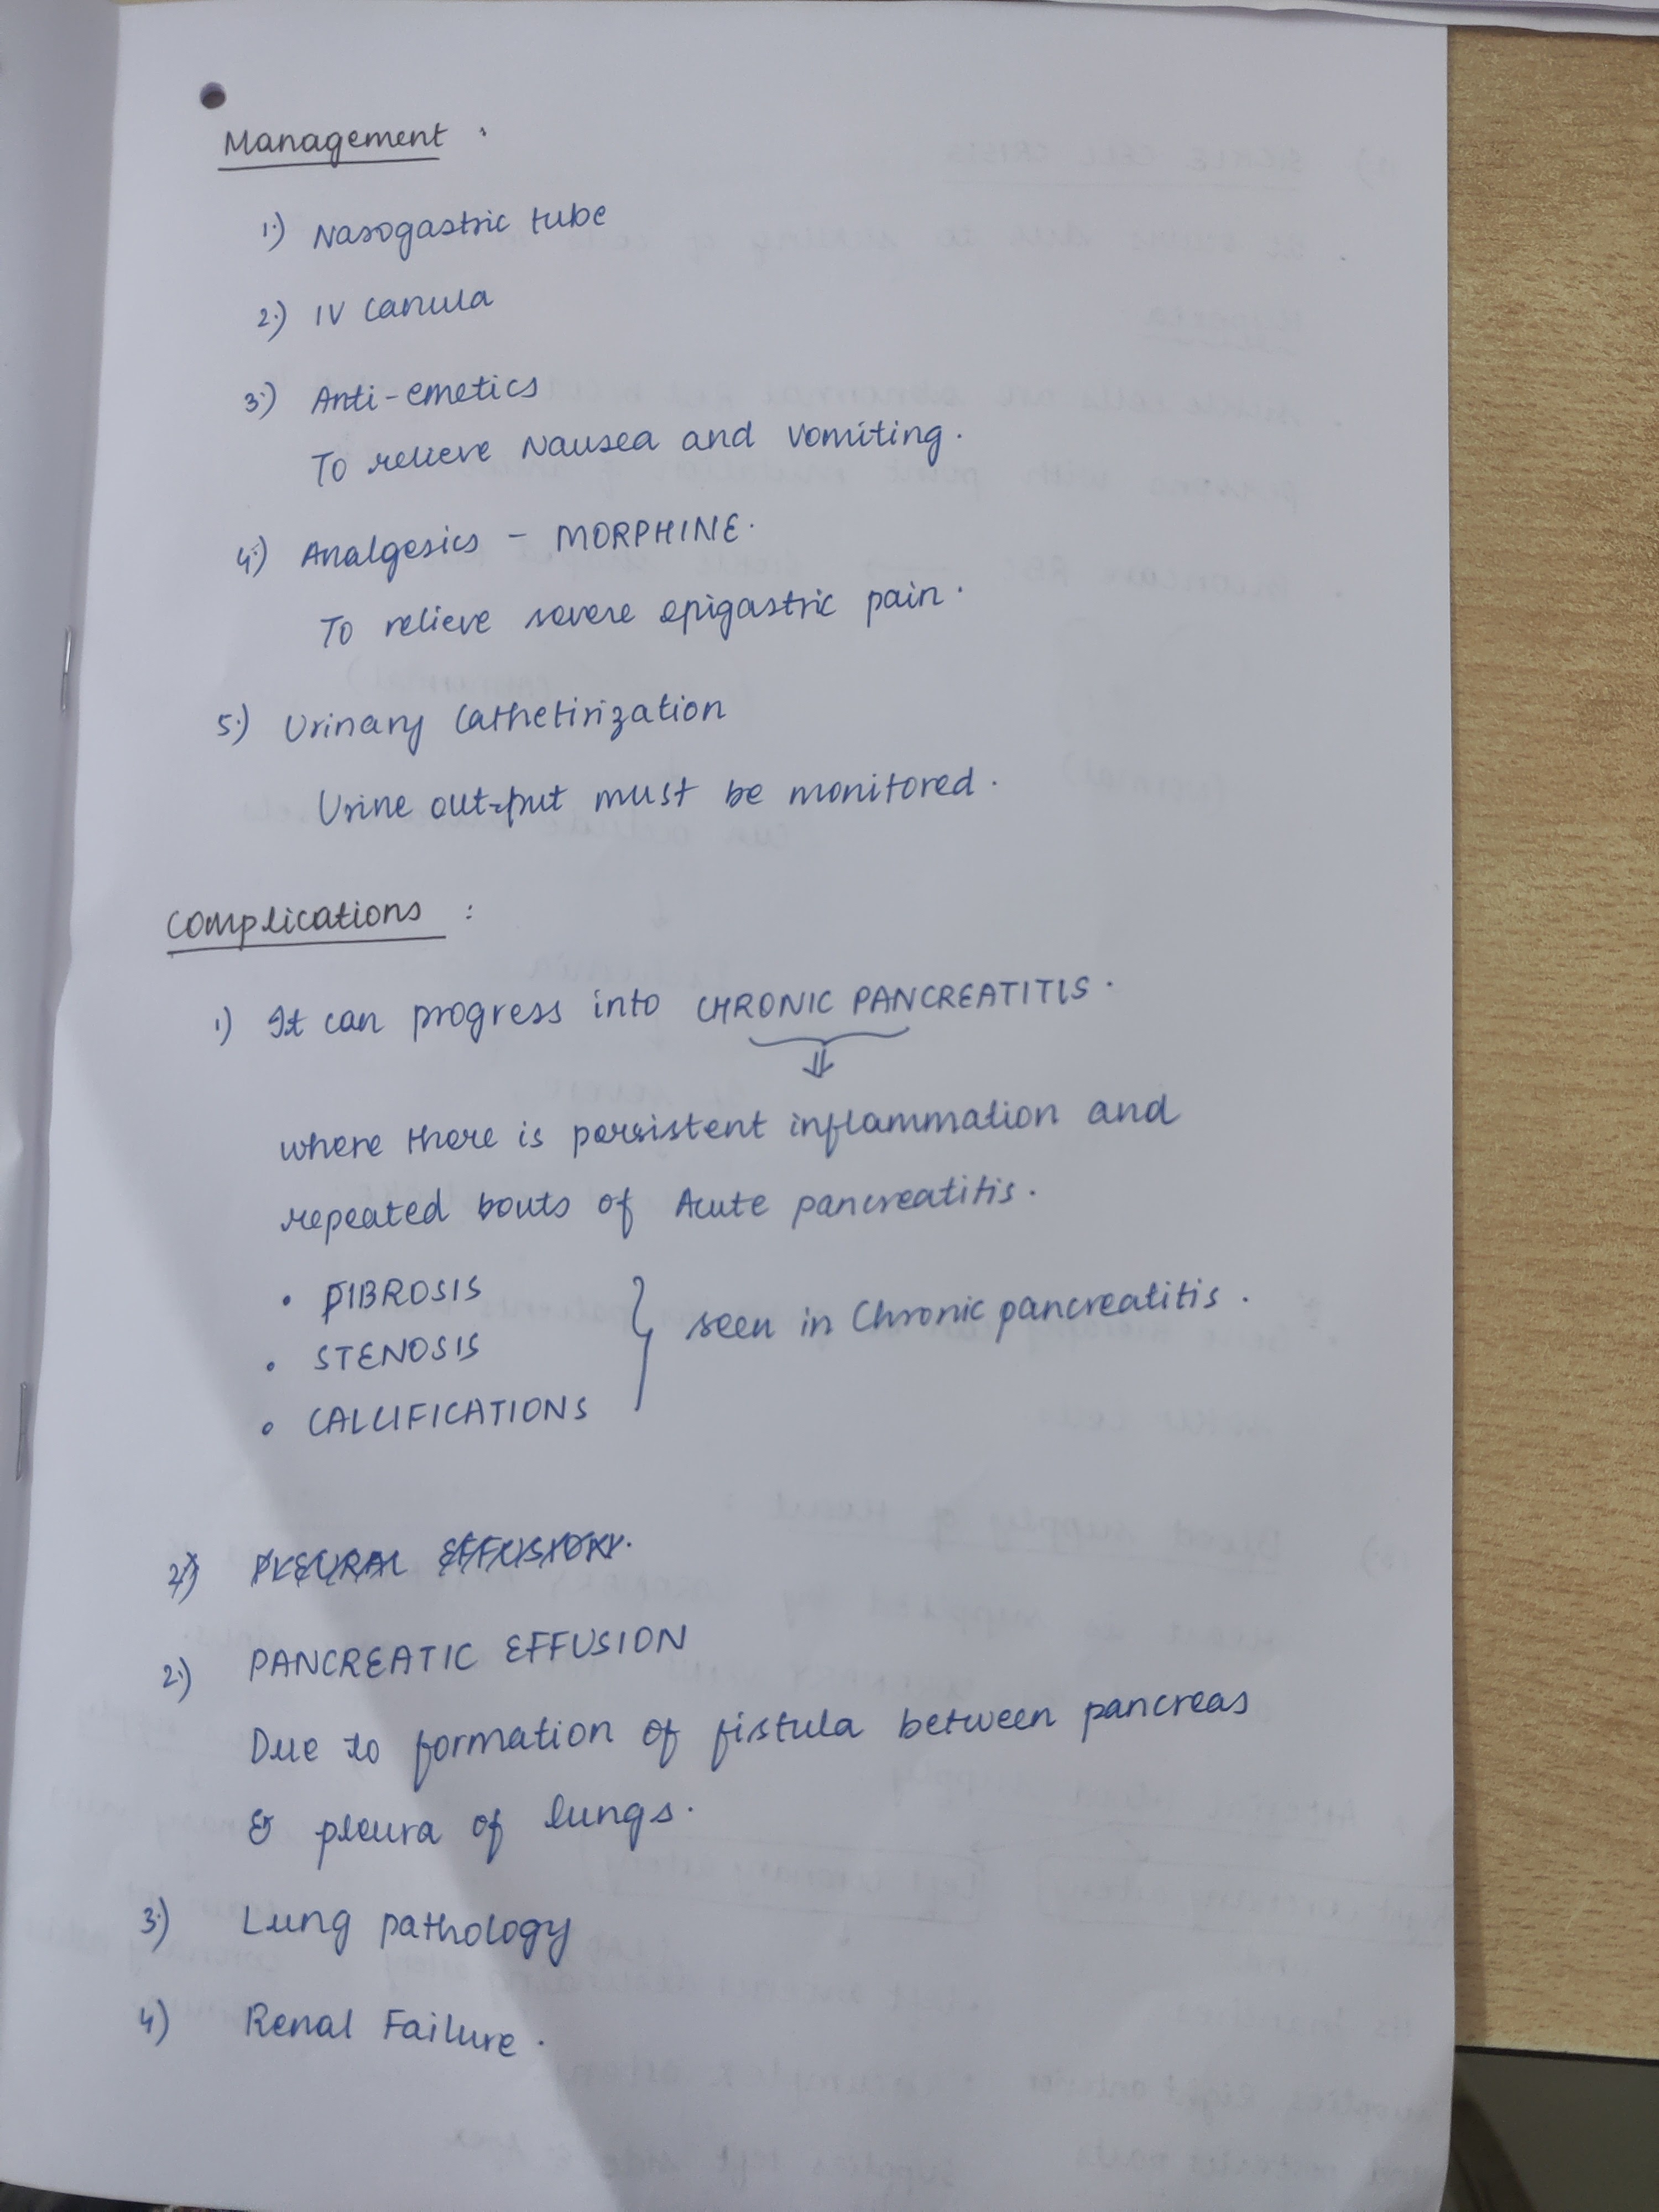 Management :
1.) Nasogastric tube
2.) IV canula
3.) Anti-emetics
To relieve Nausea and vomiting.
4.) Analgesics - MORPHINE.
To relieve severe epigastric pain.
5.) Urinary Cathetirization
Urine out-put must be monitored.
Complications :
1) It can progress into CHRONIC PANCREATITIS.
⇓
where there is persistent inflammation and
repeated bouts of Acute pancreatitis.
• FIBROSIS
• STENOSIS } seen in Chronic pancreatitis.
• CALCIFICATIONS
2) PLEURAL EFFUSION.
2.) PANCREATIC EFFUSION
Due to formation of fistula between pancreas
& pleura of lungs.
3.) Lung pathology
4) Renal Failure.